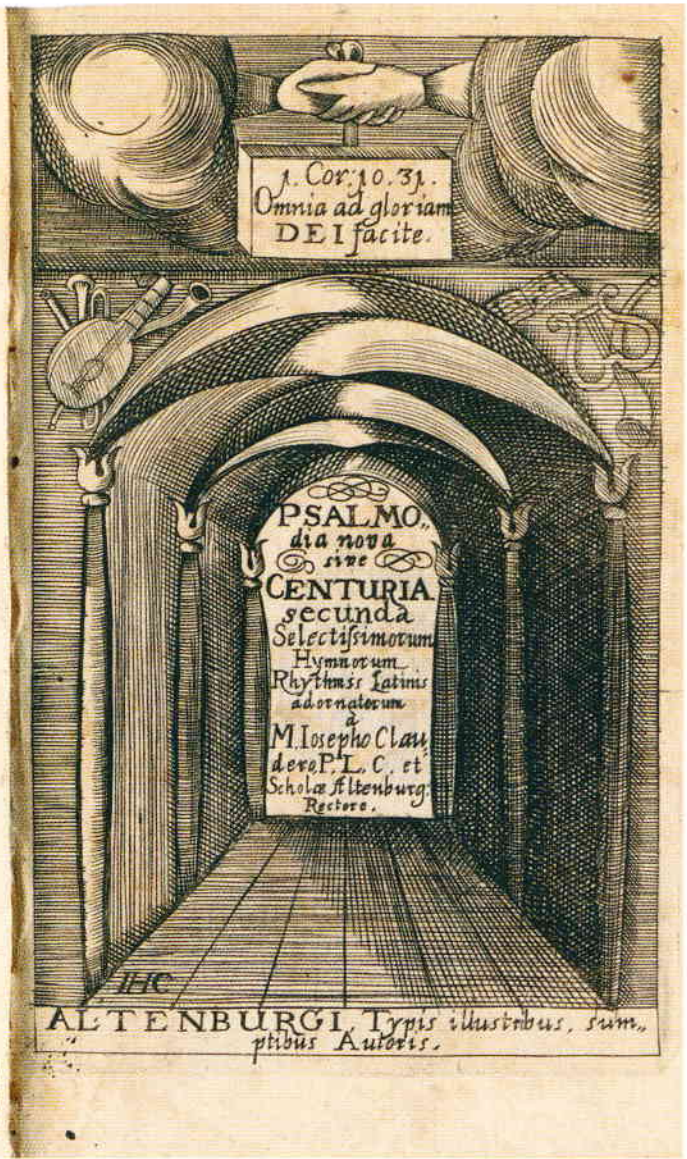 1. Cor: 10. 31.
Omnia ad gloriam
DEI facite.
PSALMO„
dia nova
sive
CENTURIA
secunda
Selectiſsimorum
Hymnorum
Rhythmis Latinis
adornatorum
à
M. Iosepho Clau„
dero P. L. C. et
Scholæ Altenburg:
Rectore.
IHC
ALTENBURGI, Typis illustribus, sum„
ptibus Autoris.